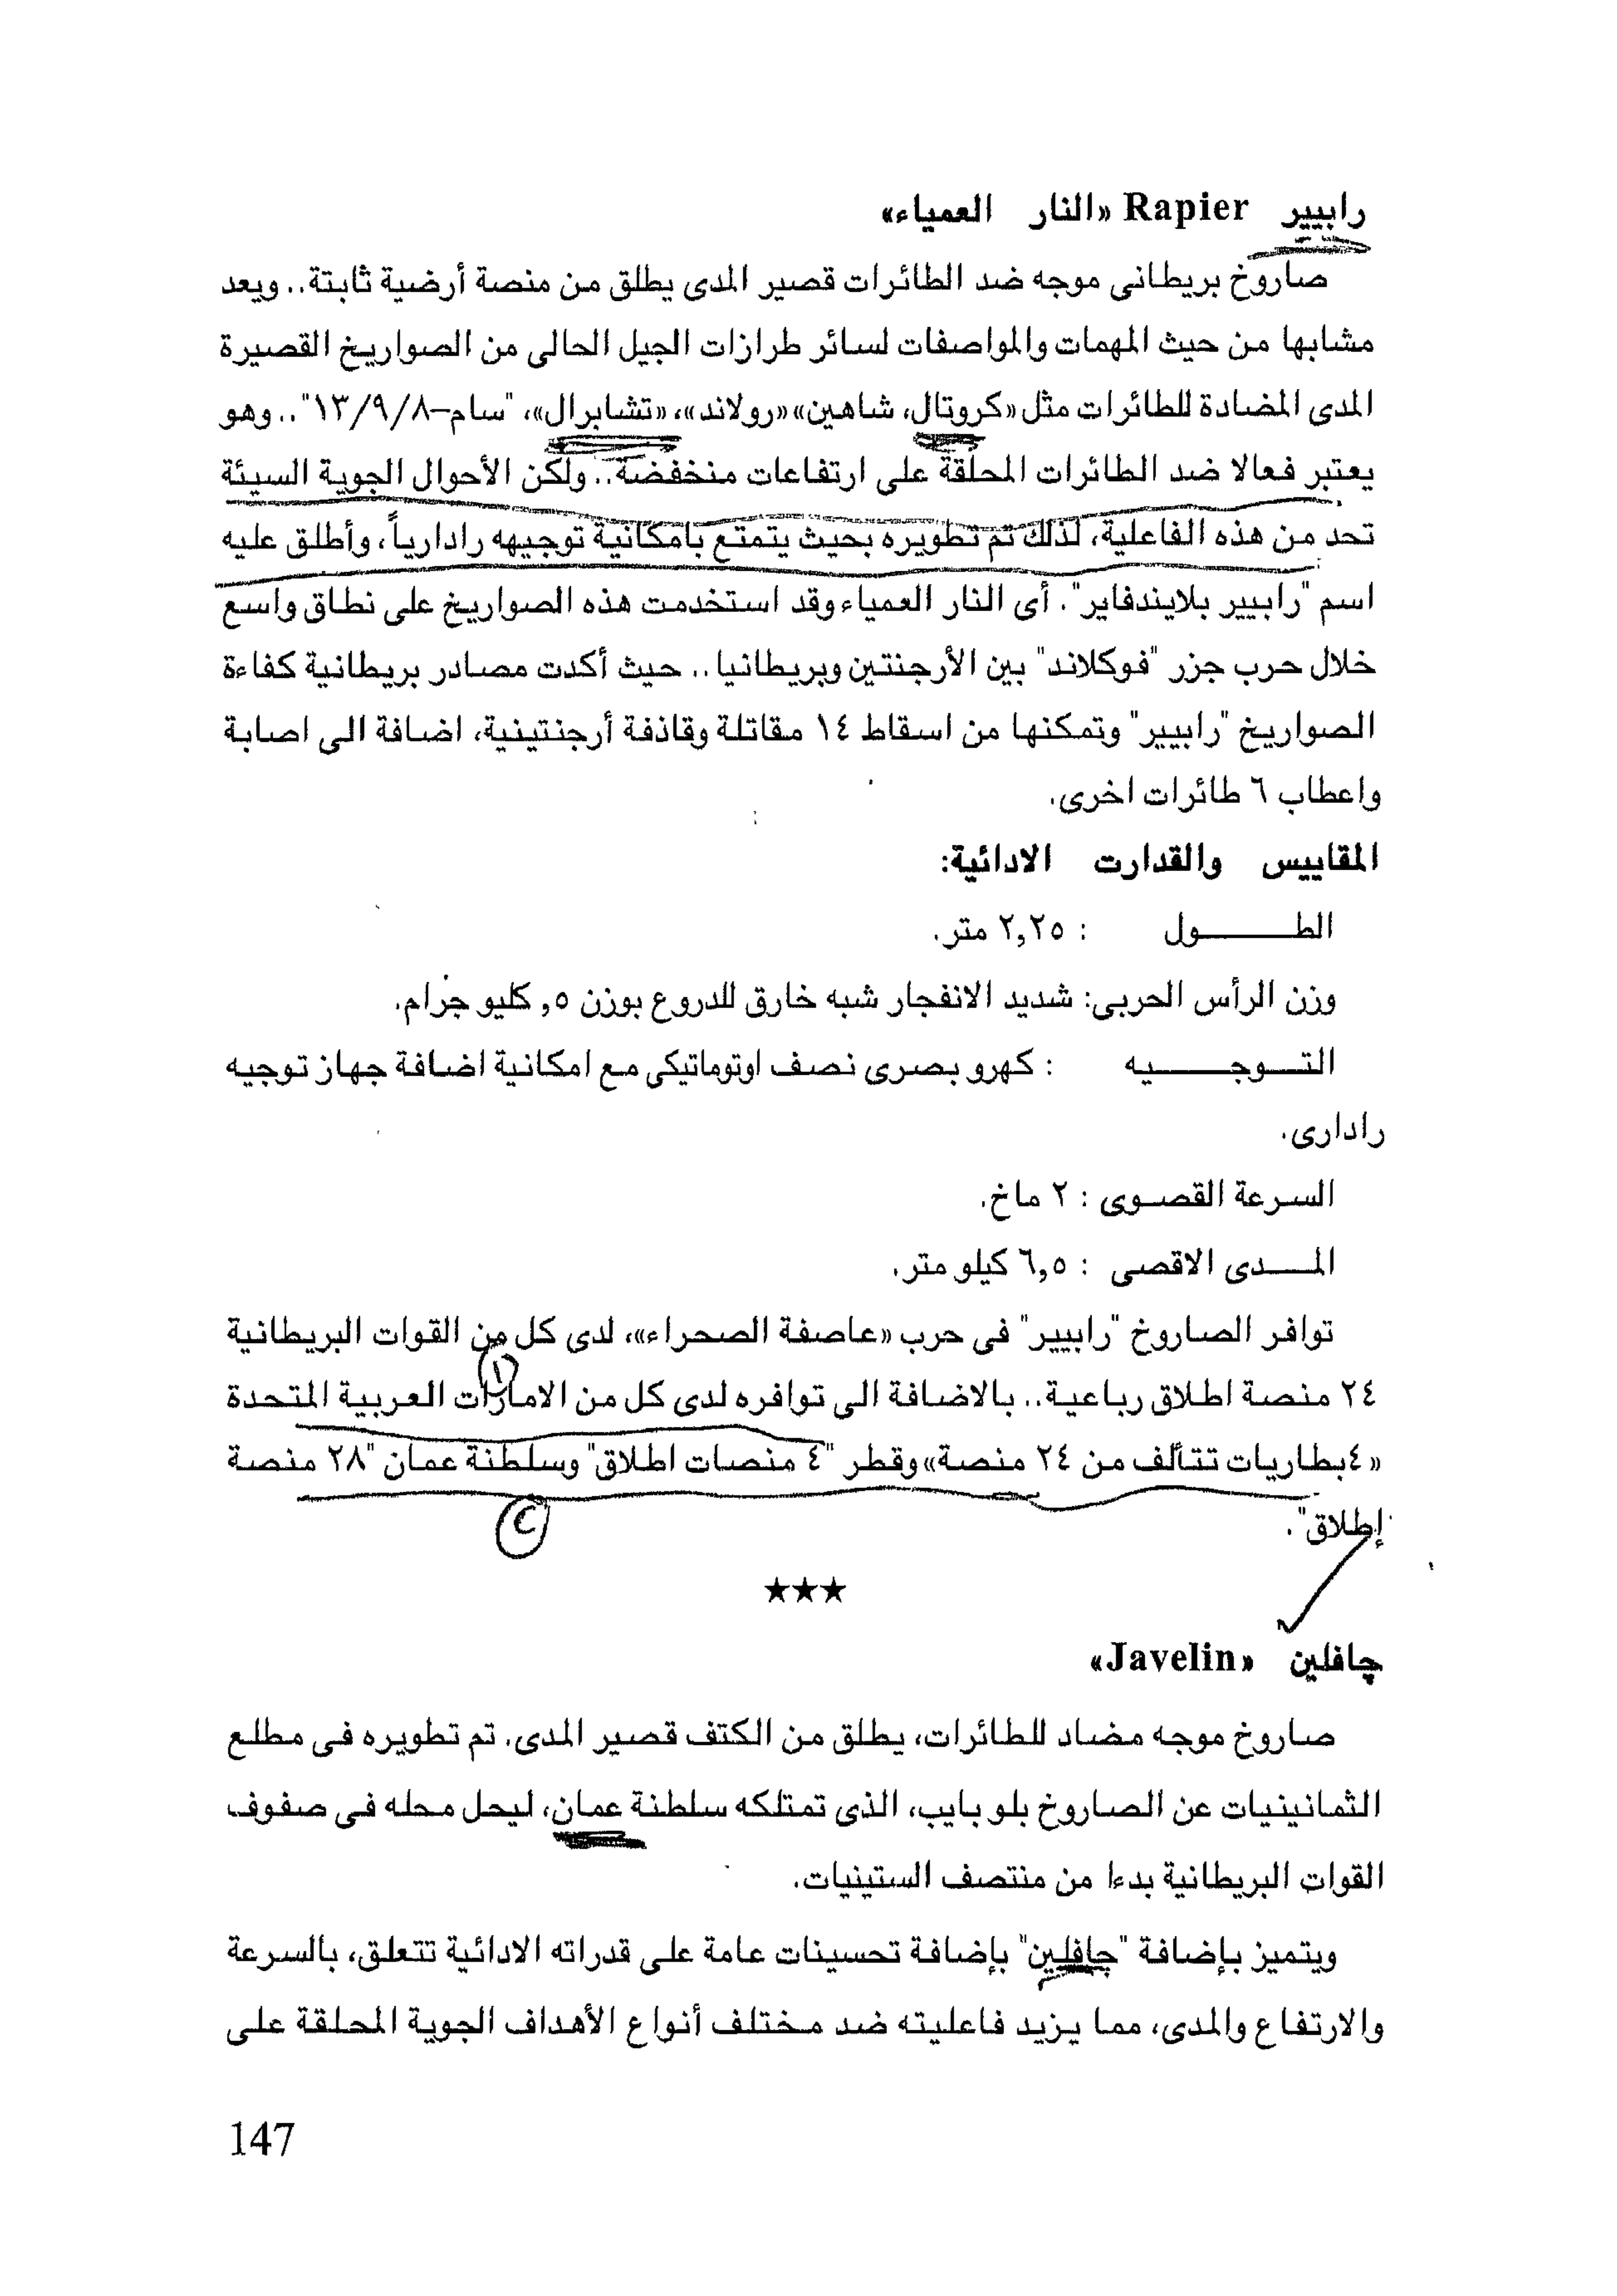 رابيير Rapier «النار العمياء»
صاروخ بريطانى موجه ضد الطائرات قصير المدى يطلق من منصة أرضية ثابتة.. ويعد
مشابها من حيث المهمات والمواصفات لسائر طرازات الجيل الحالى من الصواريخ القصيرة
المدى المضادة للطائرات مثل «كروتال، شاهين» «رولاند»، «تشابرال»، "سام-١٣/٩/٨".. وهو
يعتبر فعالا ضد الطائرات المحلقة على ارتفاعات منخفضة.. ولكن الأحوال الجوية السيئة
تحد من هذه الفاعلية، لذلك تم تطويره بحيث يتمتع بامكانية توجيهه رادارياً، وأطلق عليه
اسم "رابيير بلايندفاير". أى النار العمياء وقد استخدمت هذه الصواريخ على نطاق واسع
خلال حرب جزر "فوكلاند" بين الأرجنتين وبريطانيا.. حيث أكدت مصادر بريطانية كفاءة
الصواريخ "رابيير" وتمكنها من اسقاط ١٤ مقاتلة وقاذفة أرجنتينية، اضافة الى اصابة
واعطاب ٦ طائرات اخرى.
المقاييس والقدارت الادائية:
الطـــــــول : ٢,٢٥ متر.
وزن الرأس الحربى: شديد الانفجار شبه خارق للدروع بوزن ٥, كليو جرام.
التـــوجــــــيه : كهرو بصرى نصف اوتوماتيكى مع امكانية اضافة جهاز توجيه
رادارى.
السرعة القصوى : ٢ ماخ.
المـــدى الاقصى : ٦,٥ كيلو متر.
توافر الصاروخ "رابيير" فى حرب «عاصفة الصحراء»، لدى كل من القوات البريطانية
١
٢٤ منصة اطلاق رباعية.. بالاضافة الى توافره لدى كل من الامارات العربية المتحدة
«٤بطاريات تتألف من ٢٤ منصة» وقطر "٤ منصات اطلاق" وسلطنة عمان "٢٨ منصة
إطلاق".
٢
★★★
چافلين «Javelin»
صاروخ موجه مضاد للطائرات، يطلق من الكتف قصير المدى. تم تطويره فى مطلع
الثمانينيات عن الصاروخ بلو بايب، الذى تمتلكه سلطنة عمان، ليحل محله فى صفوف
القوات البريطانية بدءا من منتصف الستينيات.
ويتميز بإضافة "چافلين" بإضافة تحسينات عامة على قدراته الادائية تتعلق، بالسرعة
والارتفاع والمدى، مما يزيد فاعليته ضد مختلف أنواع الأهداف الجوية المحلقة على
147